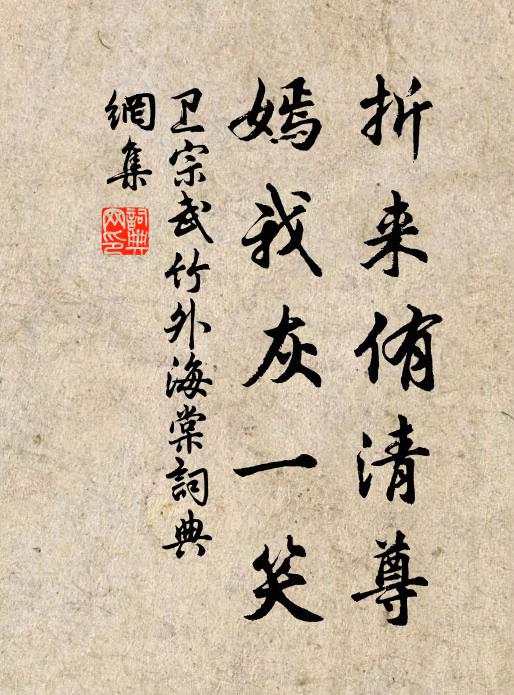 折来侑清尊
嫣我灰一笑
卫宗武竹外海棠詞典
網集
詞典
网印